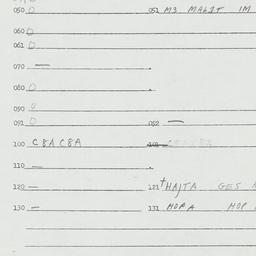 050 0 051 M3 MAG1T IM
060 0
061 0
070 —
080 0
090 0
091 0 092 —
100 C8A C8A 101
110 —
120 — 121 HAJTA GES
130 — 131 MOPA MOP